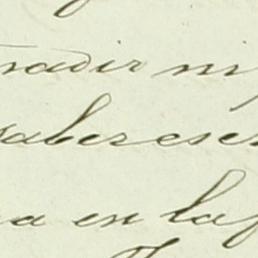 nadir ni
saber escr
a en la